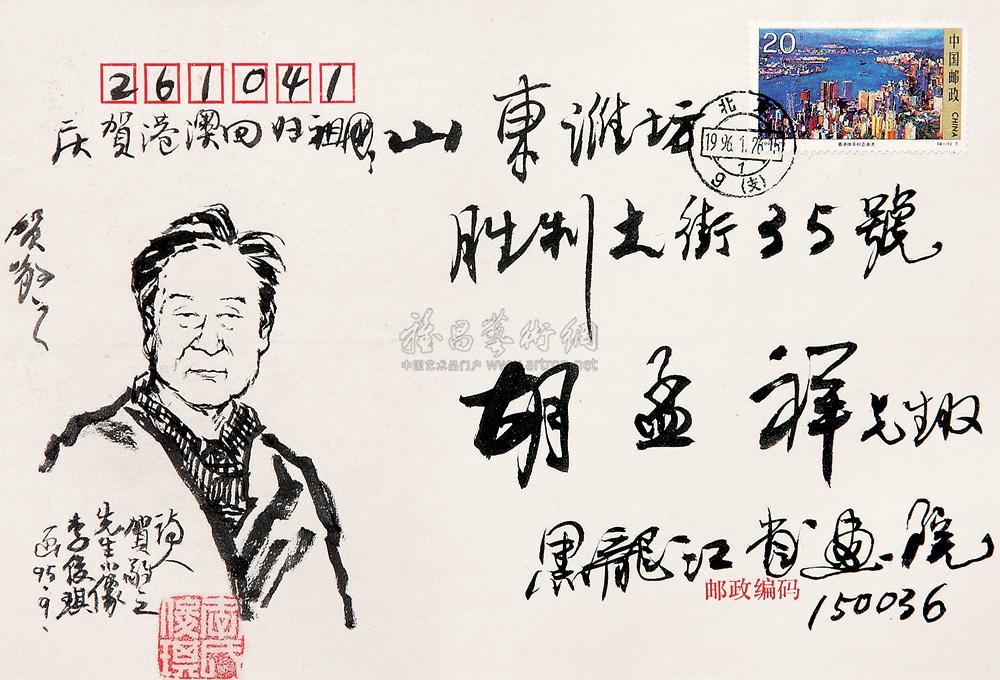 261041
庆贺港澳回归祖国
山東潍坊
胜利大街35號
胡孟祥先生收
黑龍江省画院
邮政编码
150036
贺敬之
诗人
贺敬之
先生小像
李俊琪
画95.9.
20
中国邮政
CHINA
北京
1996.1.26.15
1
9(支)
中国艺术品门户 www.artron.net